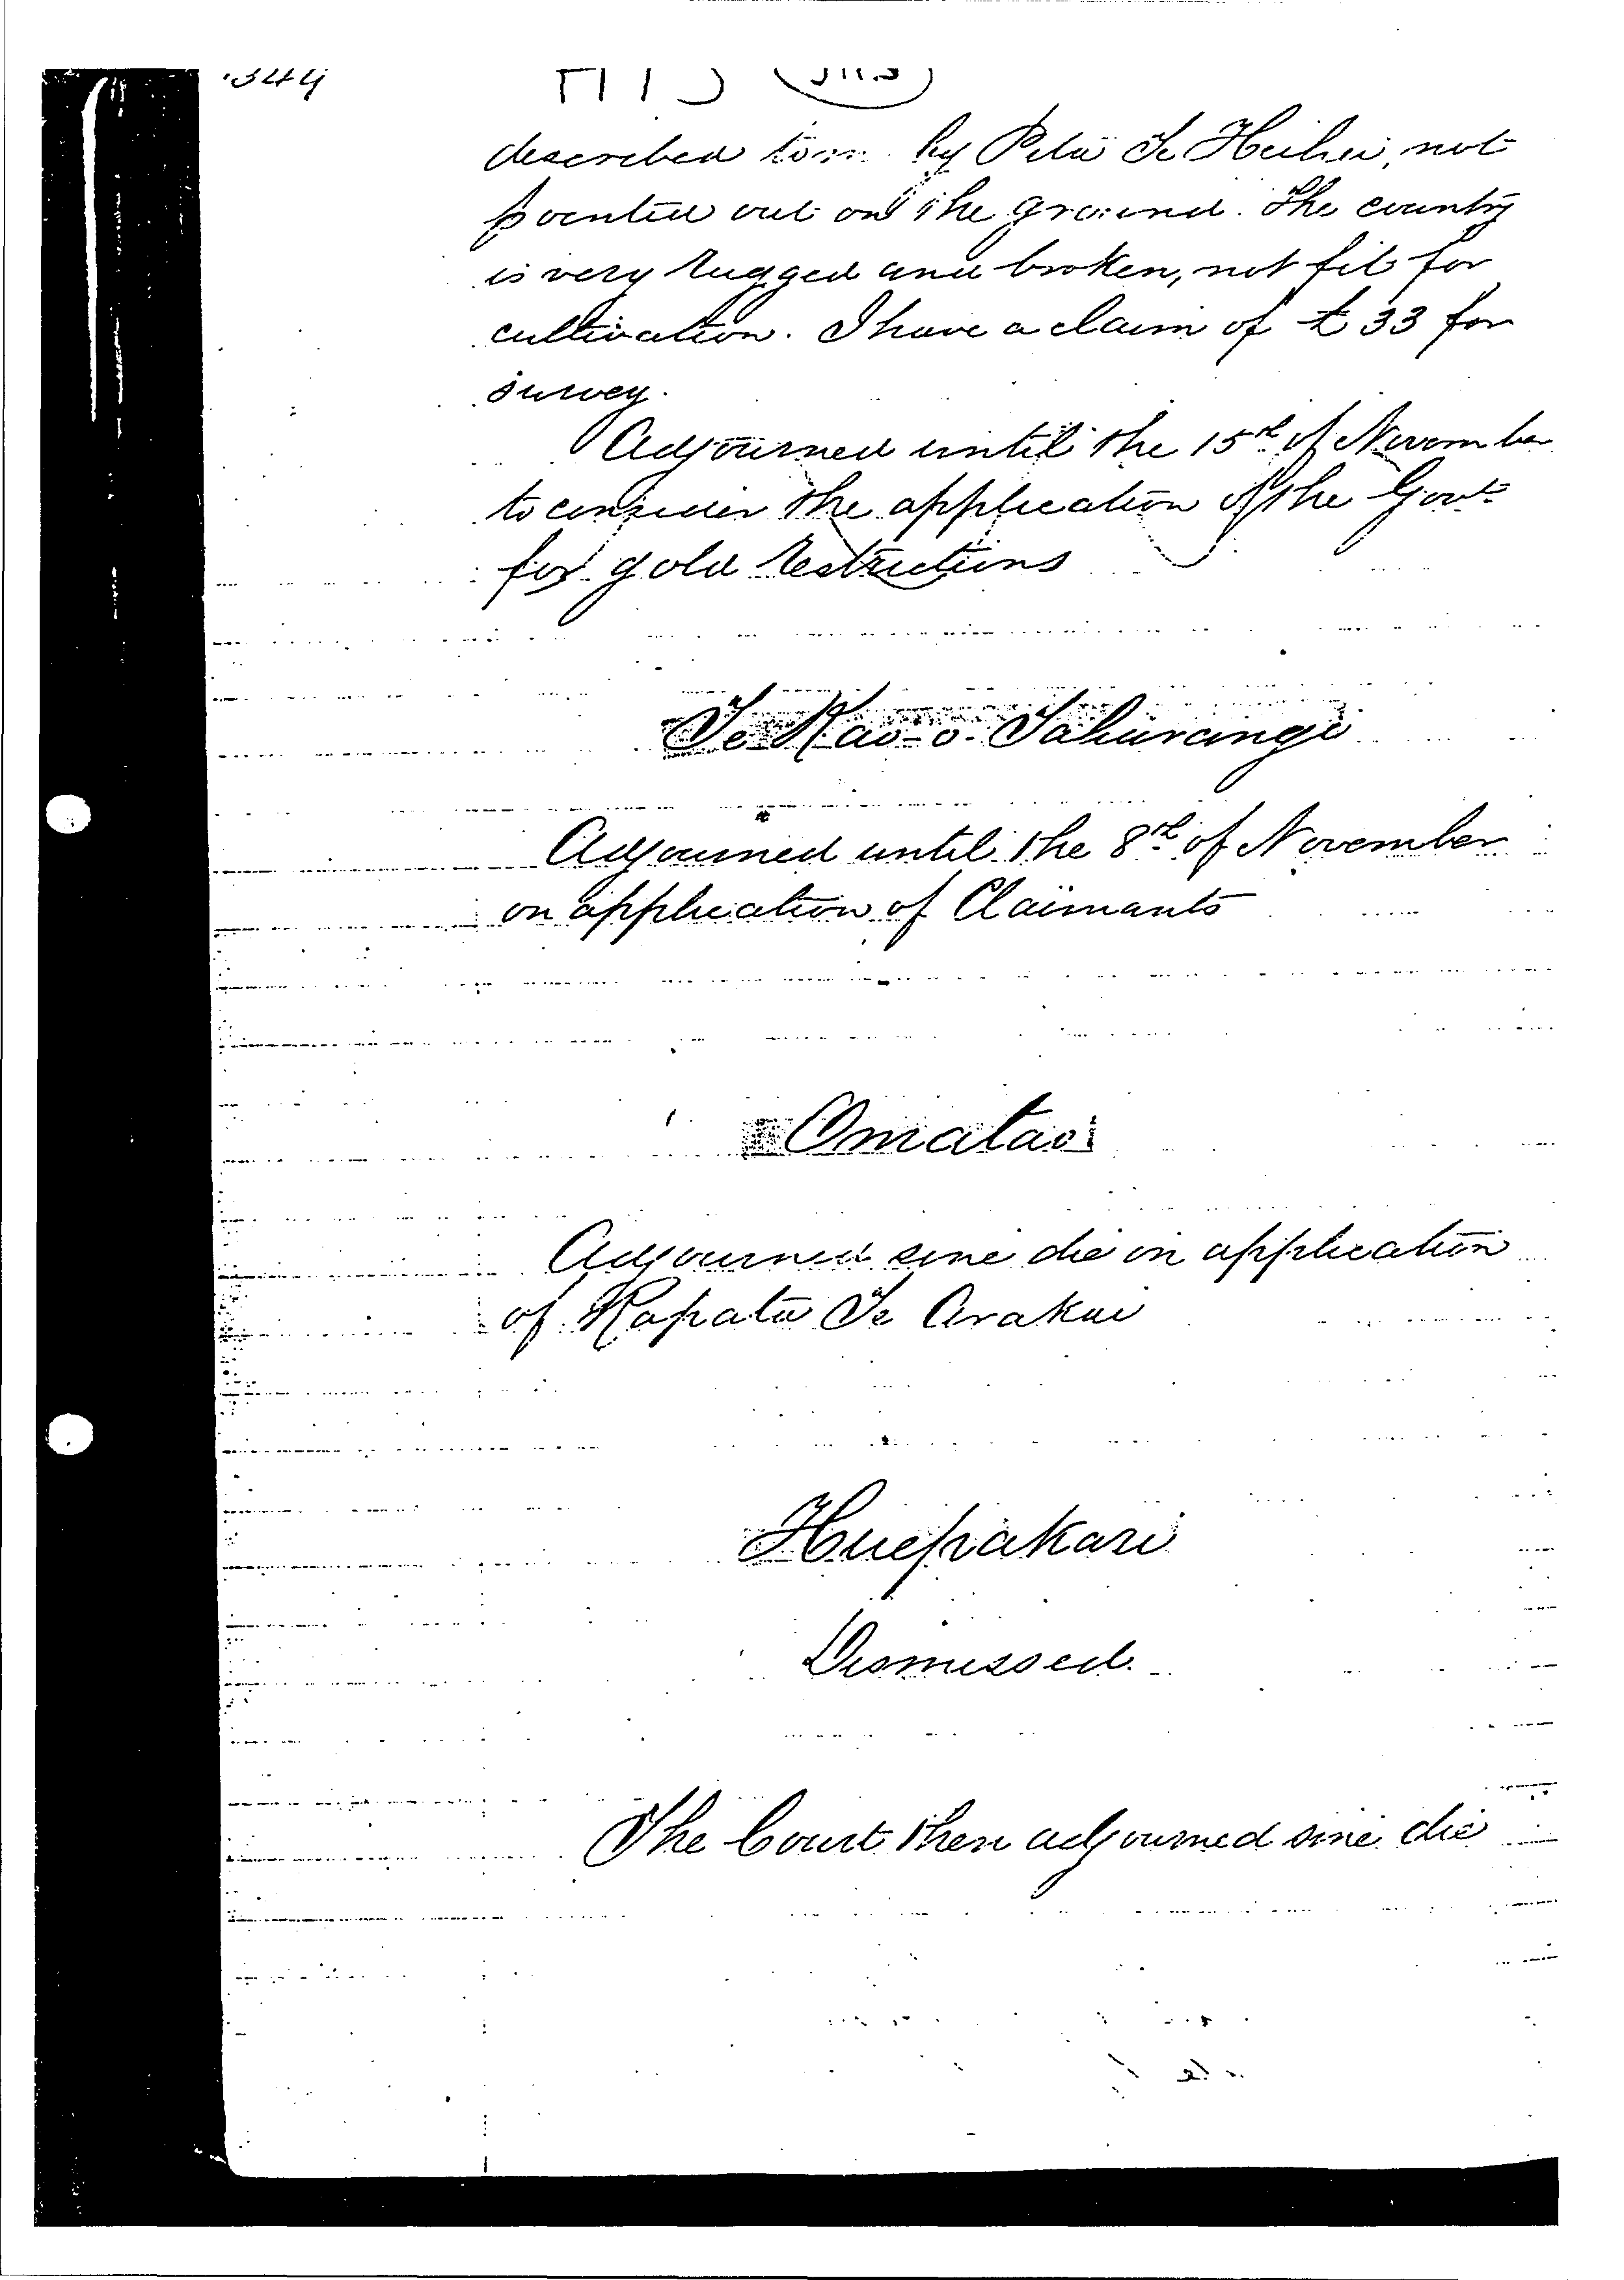 344
described to me by Pita Te Heihei, not
pointed out on the ground. The country
is very rugged and broken, not fit for
cultivation. I have a claim of £33 for
survey.
Adjourned until the 15th of November
to consider the application of the Govt
for gold restrictions
Te Kao-o-Tahurangi
Adjourned until the 8th of November
on application of Claimants
Omatae
Adjourned sine die on application
of Rapata Te Arakai
Huepakari
Dismissed.
The Court then adjourned sine die